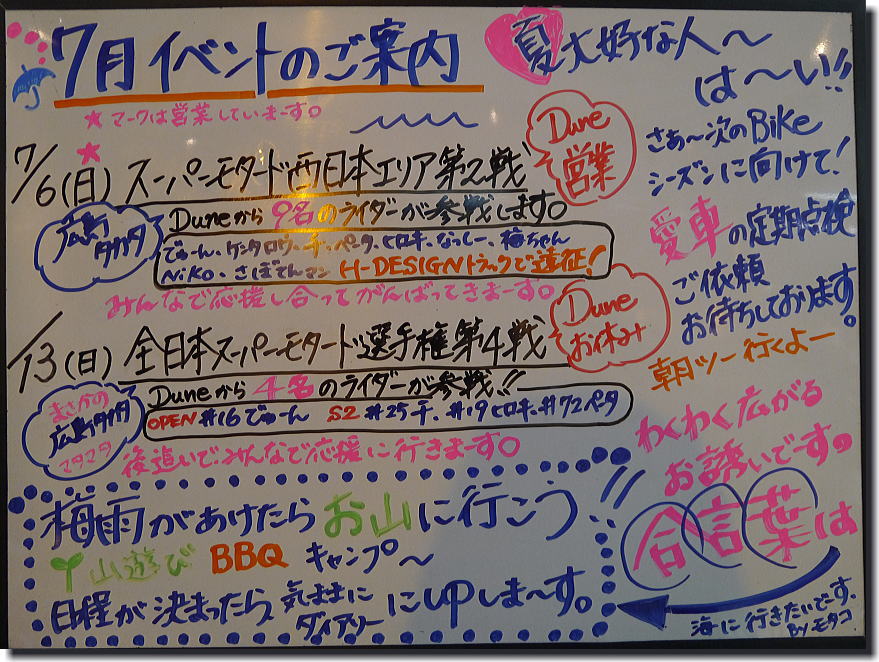 7月イベントのご案内
★マークは営業していまーす。
7/6(日) スーパーモタード西日本エリア第2戦
Dune営業
広島タカタ
Duneから9名のライダーが参戦します。
でゅーん、ケンタロウ、チ、ペータ、ヒロキ、なっしー、梅ちゃん
NiKO、さぼてんマン H-DESIGNトラックで遠征!
みんなで応援し合ってがんばってきまーす。
/13(日) 全日本スーパーモタード選手権第4戦
Duneお休み
まさかの広島タカタマタマタ
Duneから4名のライダーが参戦!!
OPEN #16でゅーん S2 #25チ、#19ヒロキ、#72ペタ
後追いでみんなで応援に行きまーす。
梅雨があけたらお山に行こう!!
山遊び BBQ キャンプ〜
日程が決まったら気ままにダイアリーにUPしま〜す。
夏大好な人〜
は〜い!!
さぁ〜次のBiKe
シーズンに向けて!
愛車の定期点検
ご依頼
お待ちしております。
朝ツー行くよー
わくわく広がる
お誘いでーすの
合言葉は
海に行きたいでーす。
By モタコ